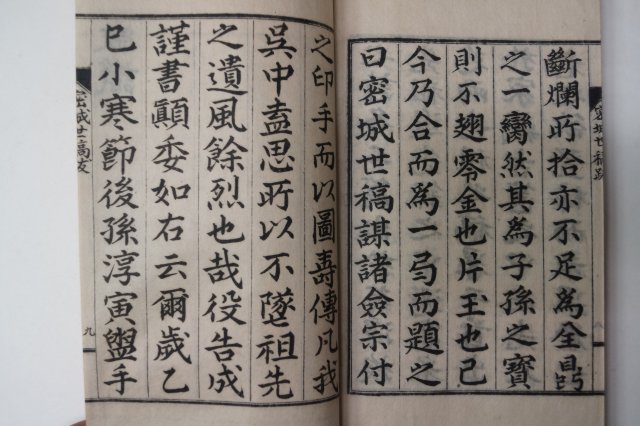 斷爛所拾亦不足為全鼎
之一臠然其為子孫之寶
則不翅零金也片玉也已
今乃合而為一局而題之
曰密城世稿謀諸僉宗付
密城世稿跋
八
之印手而以圖壽傳凡我
吳中盍思所以不墜祖先
之遺風餘烈也哉役告成
謹書顚委如右云爾歲乙
巳小寒節後孫淳寅盥手
密城世稿跋
九